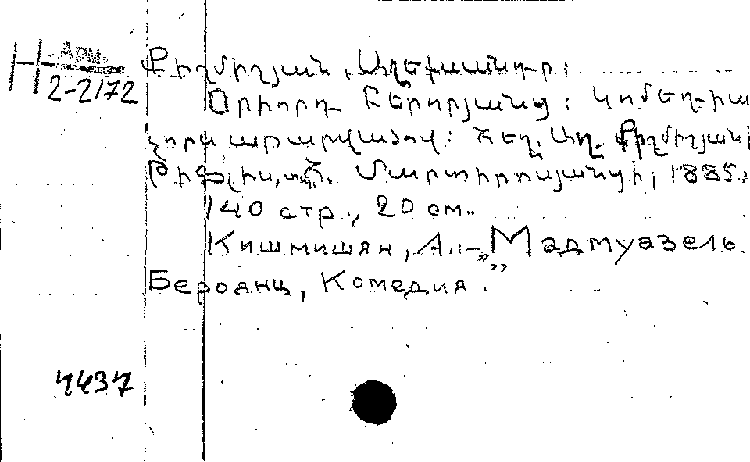 Н Арм.
2-2172
Քիշմիշյան, Ալեքսանդր։
Օրիորդ Բերորյանց։ Կոմեդիա
չորս արարվածով։ Հեղ. Ալ. Քիշմիշյանի
Թիֆլիս, տպ. Մարտիրոսյանցի, 1885.
140 стр., 20 см.
Кишмишян, А. – „Мадмуазель
Бероянц„ Комедия.
4437